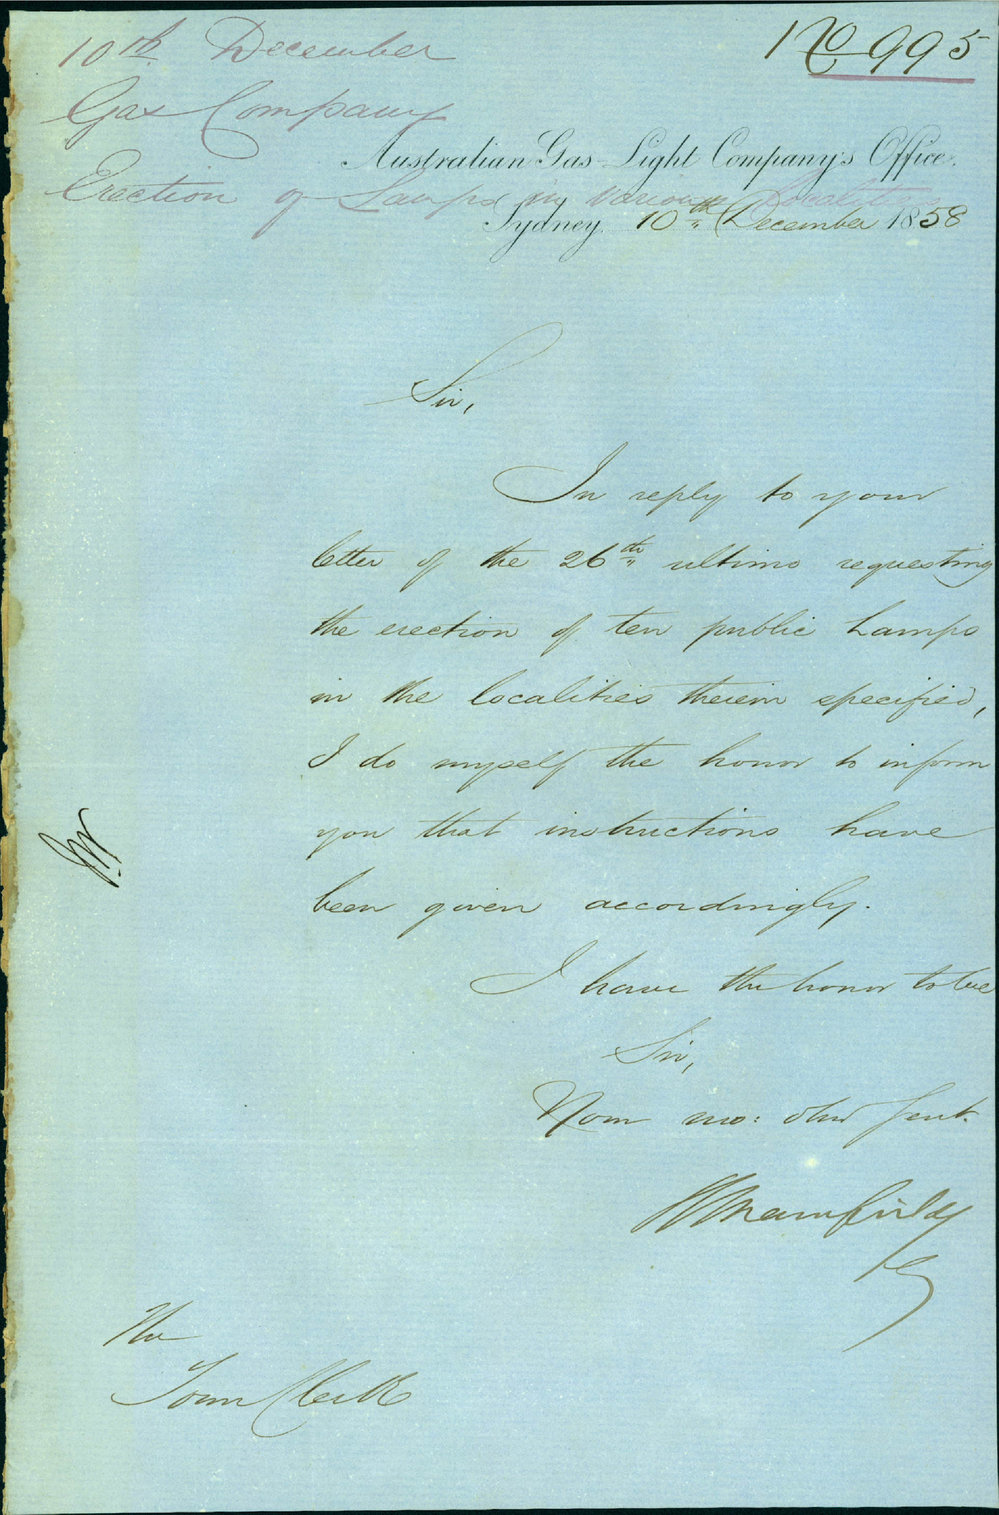 10th December
No 995
Gas Company
Australian Gas-Light Company's Office.
Erection of Lamps in various Localities
Sydney 10th December 1858
Sir,
In reply to your
letter of the 26th ultimo requesting
the erection of ten public Lamps
in the localities therein specified,
I do myself the honor to inform
you that instructions have
been given accordingly.
I have the honor to be
Sir,
Your mo: obed Servt.
Mansfield
The
Town Clerk